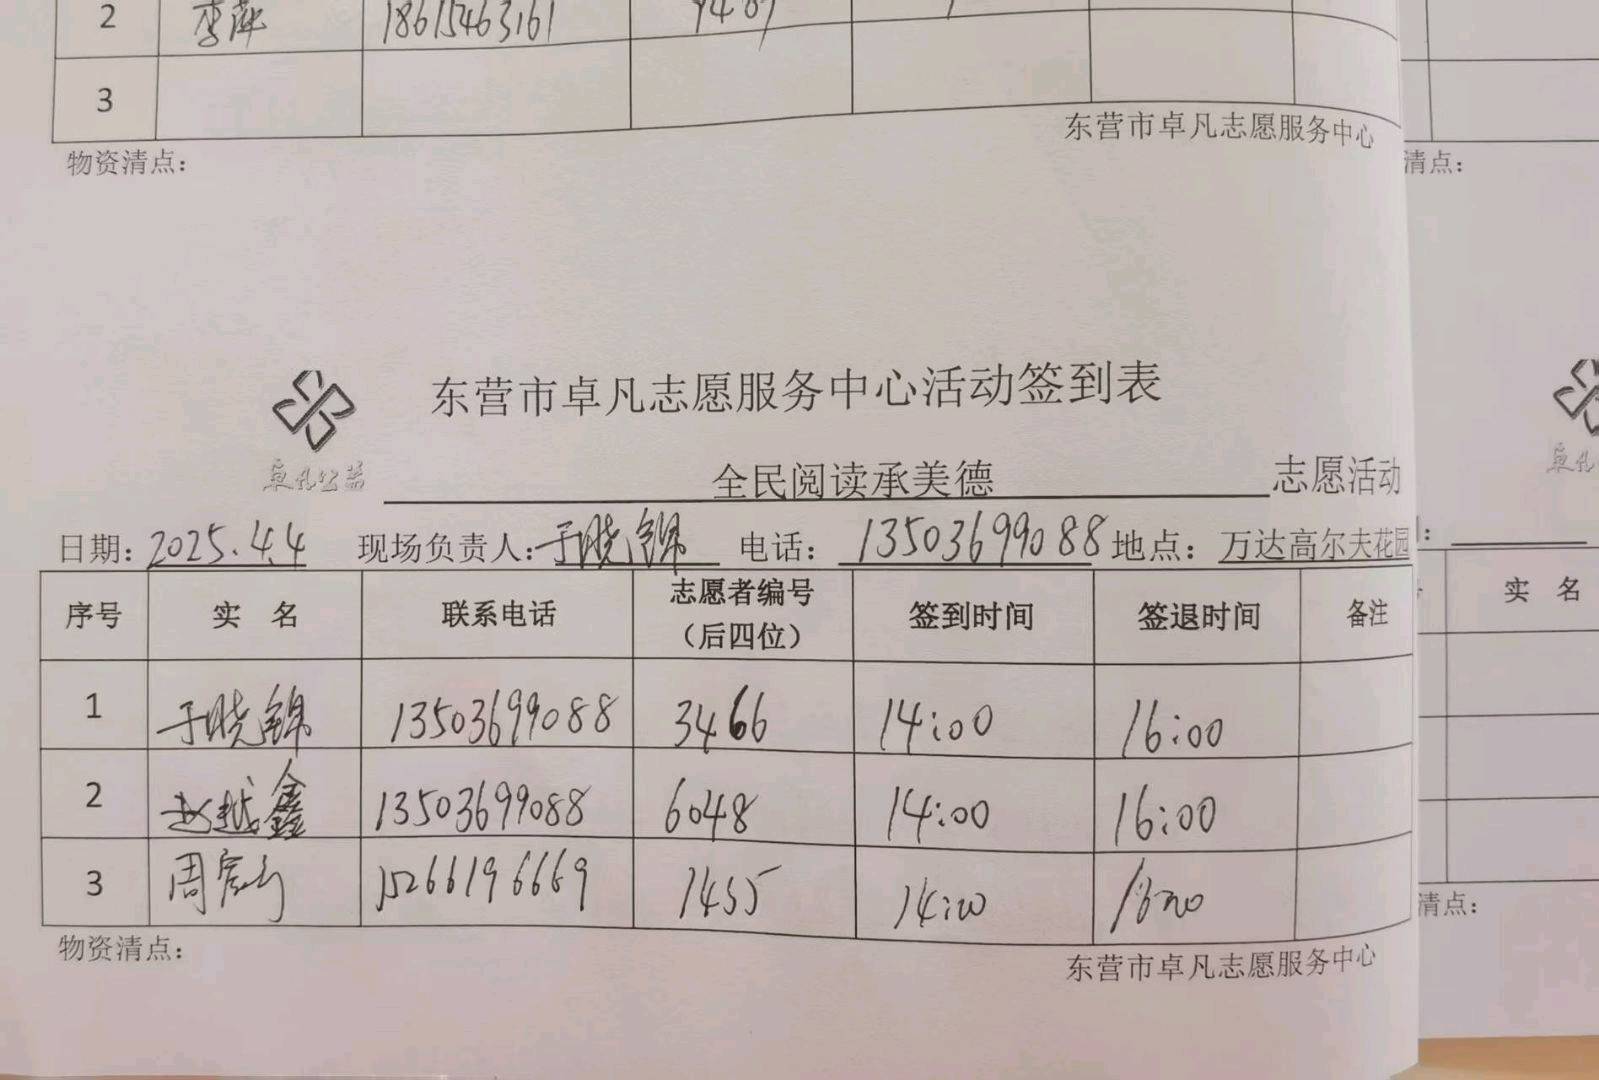 2 李萍 18615463161
3
东营市卓凡志愿服务中心
物资清点：
清点：
东营市卓凡志愿服务中心活动签到表
卓凡公益
全民阅读承美德 志愿活动
日期：2025.4.4 现场负责人：于晓锦 电话：13503699088 地点：万达高尔夫花园
序号 实 名 联系电话 志愿者编号（后四位） 签到时间 签退时间 备注
实 名
1 于晓锦 13503699088 3466 14:00 16:00
2 赵越鑫 13503699088 6048 14:00 16:00
3 周 15266196669 1455 14:00
清点：
物资清点：
东营市卓凡志愿服务中心